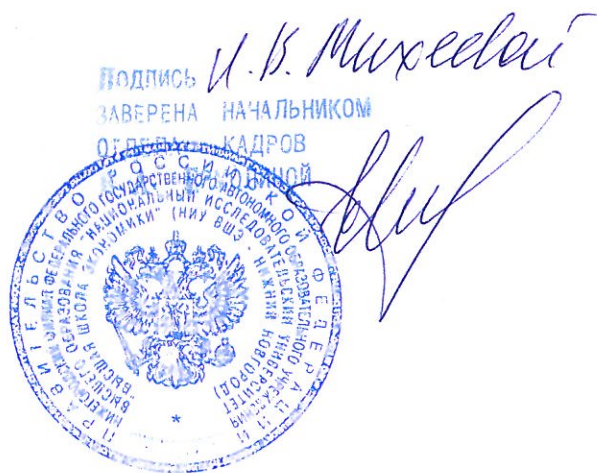 ПОДПИСЬ И. В. Михеевой
ЗАВЕРЕНА НАЧАЛЬНИКОМ
ОТДЕЛА КАДРОВ
ПРАВИТЕЛЬСТВО РОССИЙСКОЙ ФЕДЕРАЦИИ
НИЖЕГОРОДСКИЙ ФИЛИАЛ ФЕДЕРАЛЬНОГО ГОСУДАРСТВЕННОГО АВТОНОМНОГО ОБРАЗОВАТЕЛЬНОГО УЧРЕЖДЕНИЯ
ВЫСШЕГО ОБРАЗОВАНИЯ "НАЦИОНАЛЬНЫЙ ИССЛЕДОВАТЕЛЬСКИЙ УНИВЕРСИТЕТ
"ВЫСШАЯ ШКОЛА ЭКОНОМИКИ" (НИУ ВШЭ - НИЖНИЙ НОВГОРОД)
*